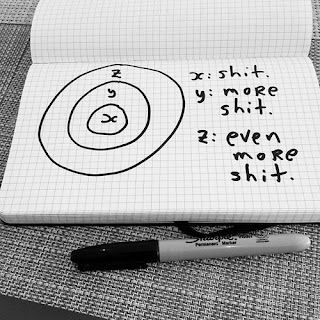 z
y
x
x: shit.
y: more
shit.
z: even
more
shit.
Sharpie
Permanent Marker